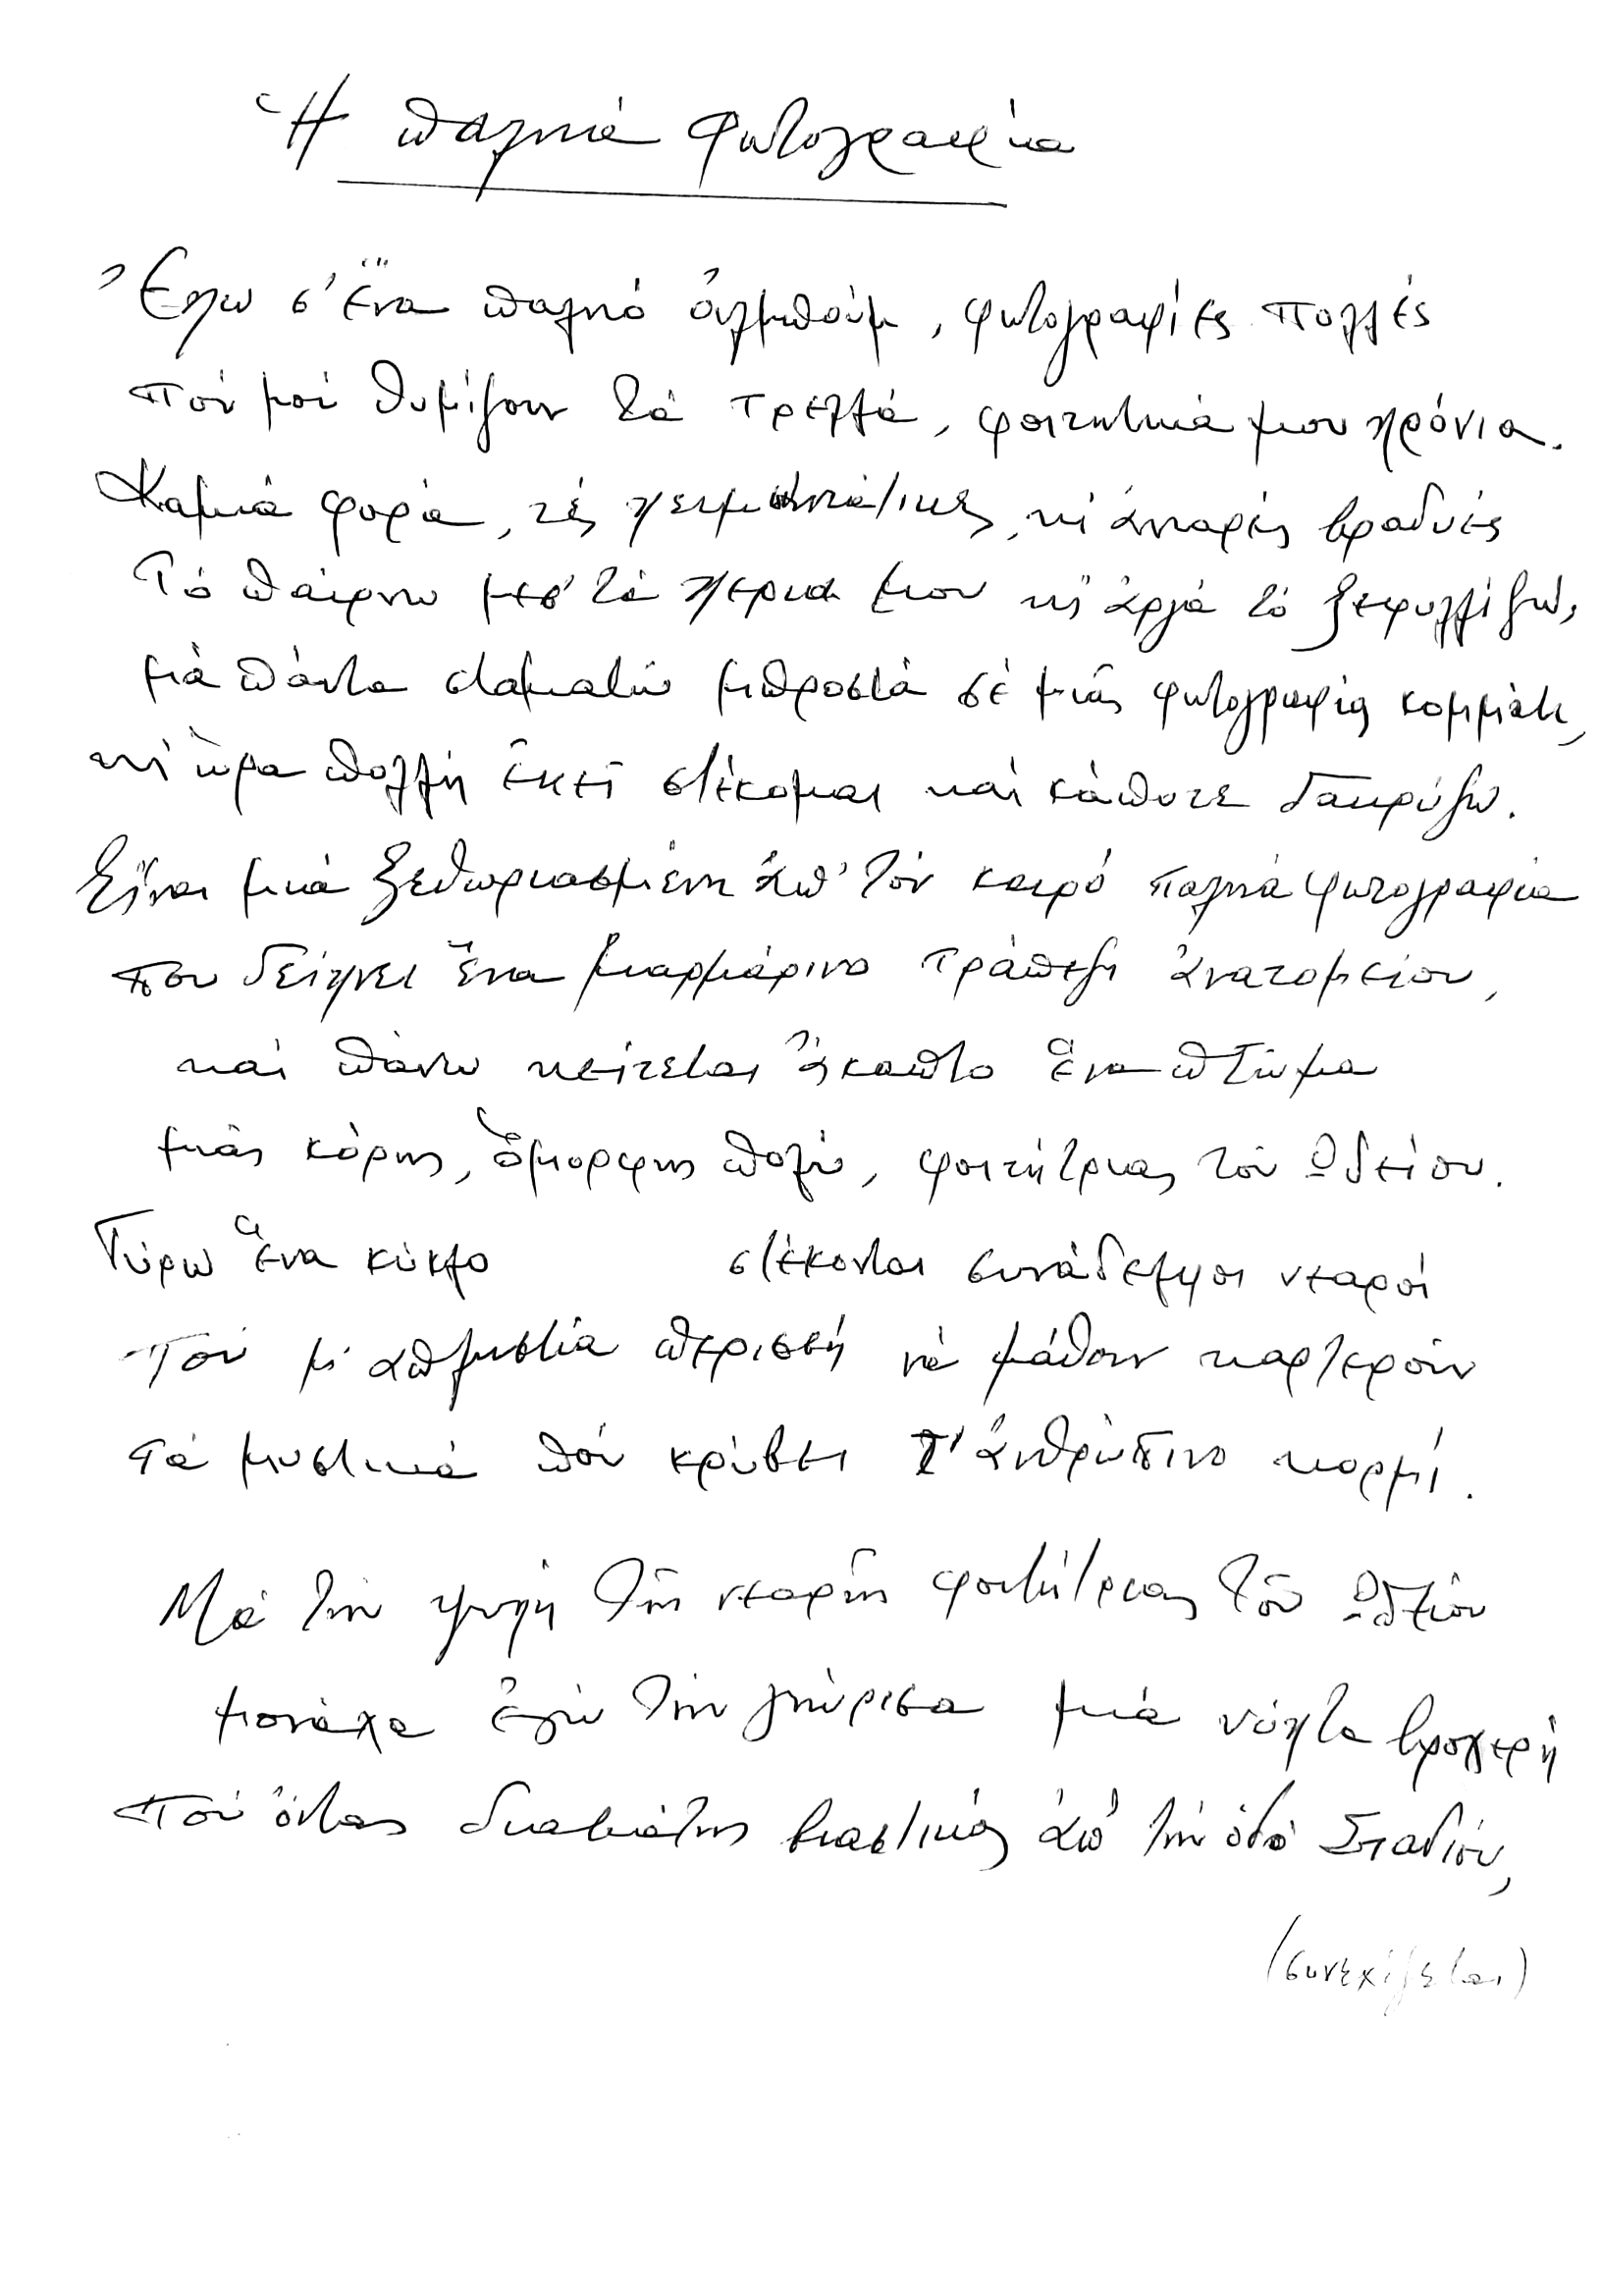 Ἡ παληά φωτογραφία
Ἔχω σ' ἕνα παληό ἄλμπουμ, φωτογραφίες πολλές
πού μοῦ θυμίζουν τά τρελλά, φοιτητικά μου χρόνια.
Καμιά φορά, τές χειμωνιάτικες, κι ἄχαρες βραδυές
Τό παίρνω μεσ' τά χέρια μου κι ἀργά τό ξεφυλλίζω,
μά πάντα σταματῶ μπροστά σέ μιᾶς φωτογραφίας κομμάτι,
κι ὥρα πολλή ἐκεῖ στέκομαι καί κάποτε δακρύζω.
Εἶναι μιά ξεθωριασμένη ἀπ' τόν καιρό παληά φωτογραφία
που δείχνει ἕνα μαρμάρινο τραπέζι ἀνατομείου,
καί πάνω κείτεται ἄκαπτο ἕνα πτῶμα
μιᾶς κόρης, ὄμορφης πολύ, φοιτήτριας τοῦ Ὠδείου.
Γύρω ἕνα κύκλο στέκονται συνάδελφοι νεαροί
Πού μ' ἀπληστία περισσή νά μάθουν καρτεροῦν
τά μυστικά πού κρύβει τ' ἀνθρώπινο κορμί.
Μά τήν ψυχή τῆς νεαρῆς φοιτήτριας τοῦ Ὠδείου
μονάχα ἐγώ τήν γνώρισα μιά νύχτα βροχερή
πού ὄντας διαβάτης βιαστικός ἀπ' τήν ὁδό Σταδίου,
(συνεχίζεται)